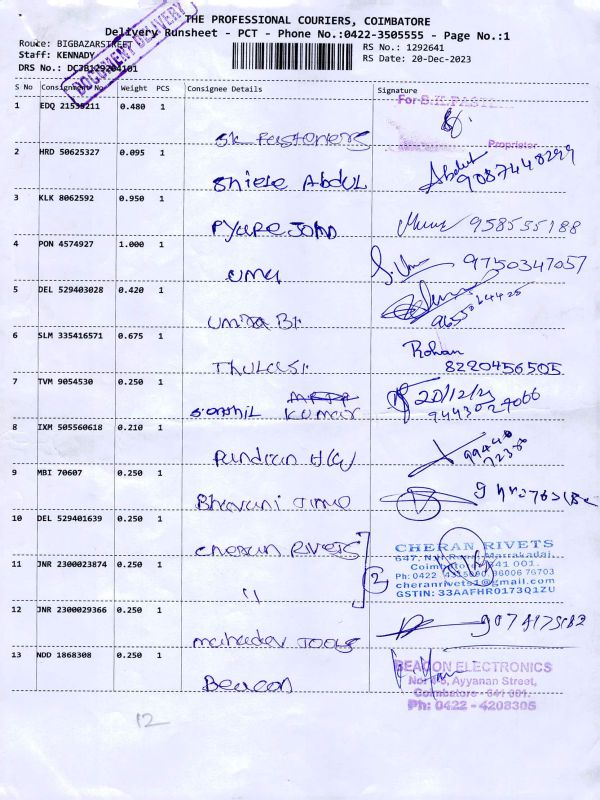 THE PROFESSIONAL COURIERS, COIMBATORE
Delivery Runsheet - PCT - Phone No.:0422-3505555 - Page No.:1
Route: BIGBAZARSTREET
RS No.: 1292641
Staff: KENNADY
RS Date: 20-Dec-2023
DRS No.:
DOCUMENT DELIVERY
S No Consignment No. Weight PCS Consignee Details Signature
1 EDQ 21538211 0.480 1
For S.K FASTENERS
SK Fastoners
Proprietor
2 HRD 50625327 0.095 1
Abdul
9087448299
Shiele Abdul
3 KLK 8062592 0.950 1
Pyare John
958555188
4 PON 4574927 1.000 1
Uma
9750347057
5 DEL 529403028 0.420 1
Umiya Bt
6 SLM 335416571 0.675 1
Rohan
Thulasi
8220456505
7 TVM 9054530 0.250 1
20/12/23
Senthil Kumar
8 IXM 505560618 0.210 1
Pandian
9 MBI 70607 0.250 1
Bhavani
10 DEL 529401639 0.250 1
Cheran Rivets
CHERAN RIVETS
647, Marrakadai,
Coimbatore 641 001.
Ph: 0422 96006 76703
cheranrivets1@gmail.com
GSTIN: 33AAFHR0173Q1ZU
11 JNR 2300023874 0.250 1
"
2
12 JNR 2300029366 0.250 1
Mahadev Tools
13 NDD 1868308 0.250 1
Beacon
BEACON ELECTRONICS
Ayyanan Street,
Coimbatore - 641 001.
Ph: 0422 - 4208305
12